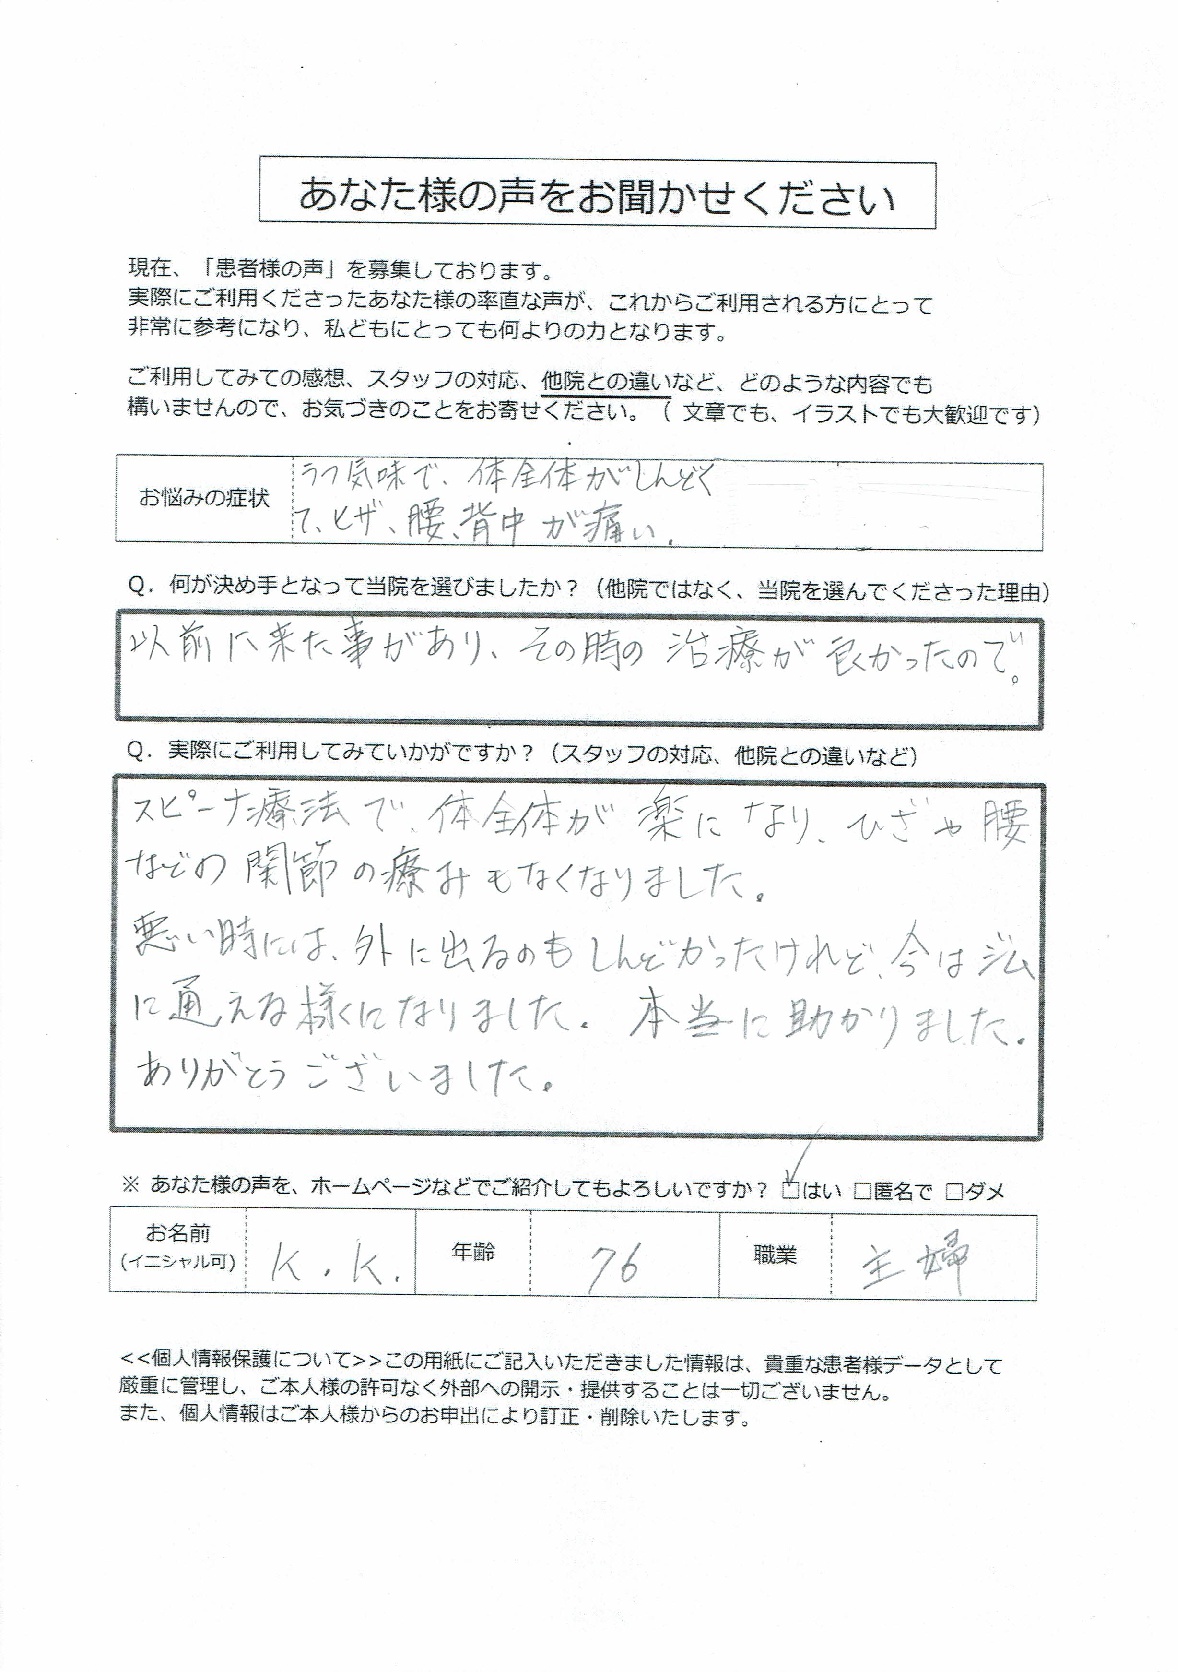 あなた様の声をお聞かせください
現在、「患者様の声」を募集しております。
実際にご利用くださったあなた様の率直な声が、これからご利用される方にとって
非常に参考になり、私どもにとっても何よりの力となります。
ご利用してみての感想、スタッフの対応、他院との違いなど、どのような内容でも
構いませんので、お気づきのことをお寄せください。（ 文章でも、イラストでも大歓迎です）
お悩みの症状
うつ気味で、体全体がしんどく
て、ヒザ、腰、背中が痛い。
Q．何が決め手となって当院を選びましたか？（他院ではなく、当院を選んでくださった理由）
以前に来た事があり、その時の治療が良かったので。
Q．実際にご利用してみていかがですか？（スタッフの対応、他院との違いなど）
スピーナ療法で、体全体が楽になり、ひざや腰
などの関節の療みもなくなりました。
悪い時には、外に出るのもしんどかったけれど、今はジム
に通える様くになりました。本当に助かりました。
ありがとうございました。
※ あなた様の声を、ホームページなどでご紹介してもよろしいですか？ □はい □匿名で □ダメ
お名前
(イニシャル可)
K．K．
年齢
76
職業
主婦
<<個人情報保護について>>この用紙にご記入いただきました情報は、貴重な患者様データとして
厳重に管理し、ご本人様の許可なく外部への開示・提供することは一切ございません。
また、個人情報はご本人様からのお申出により訂正・削除いたします。